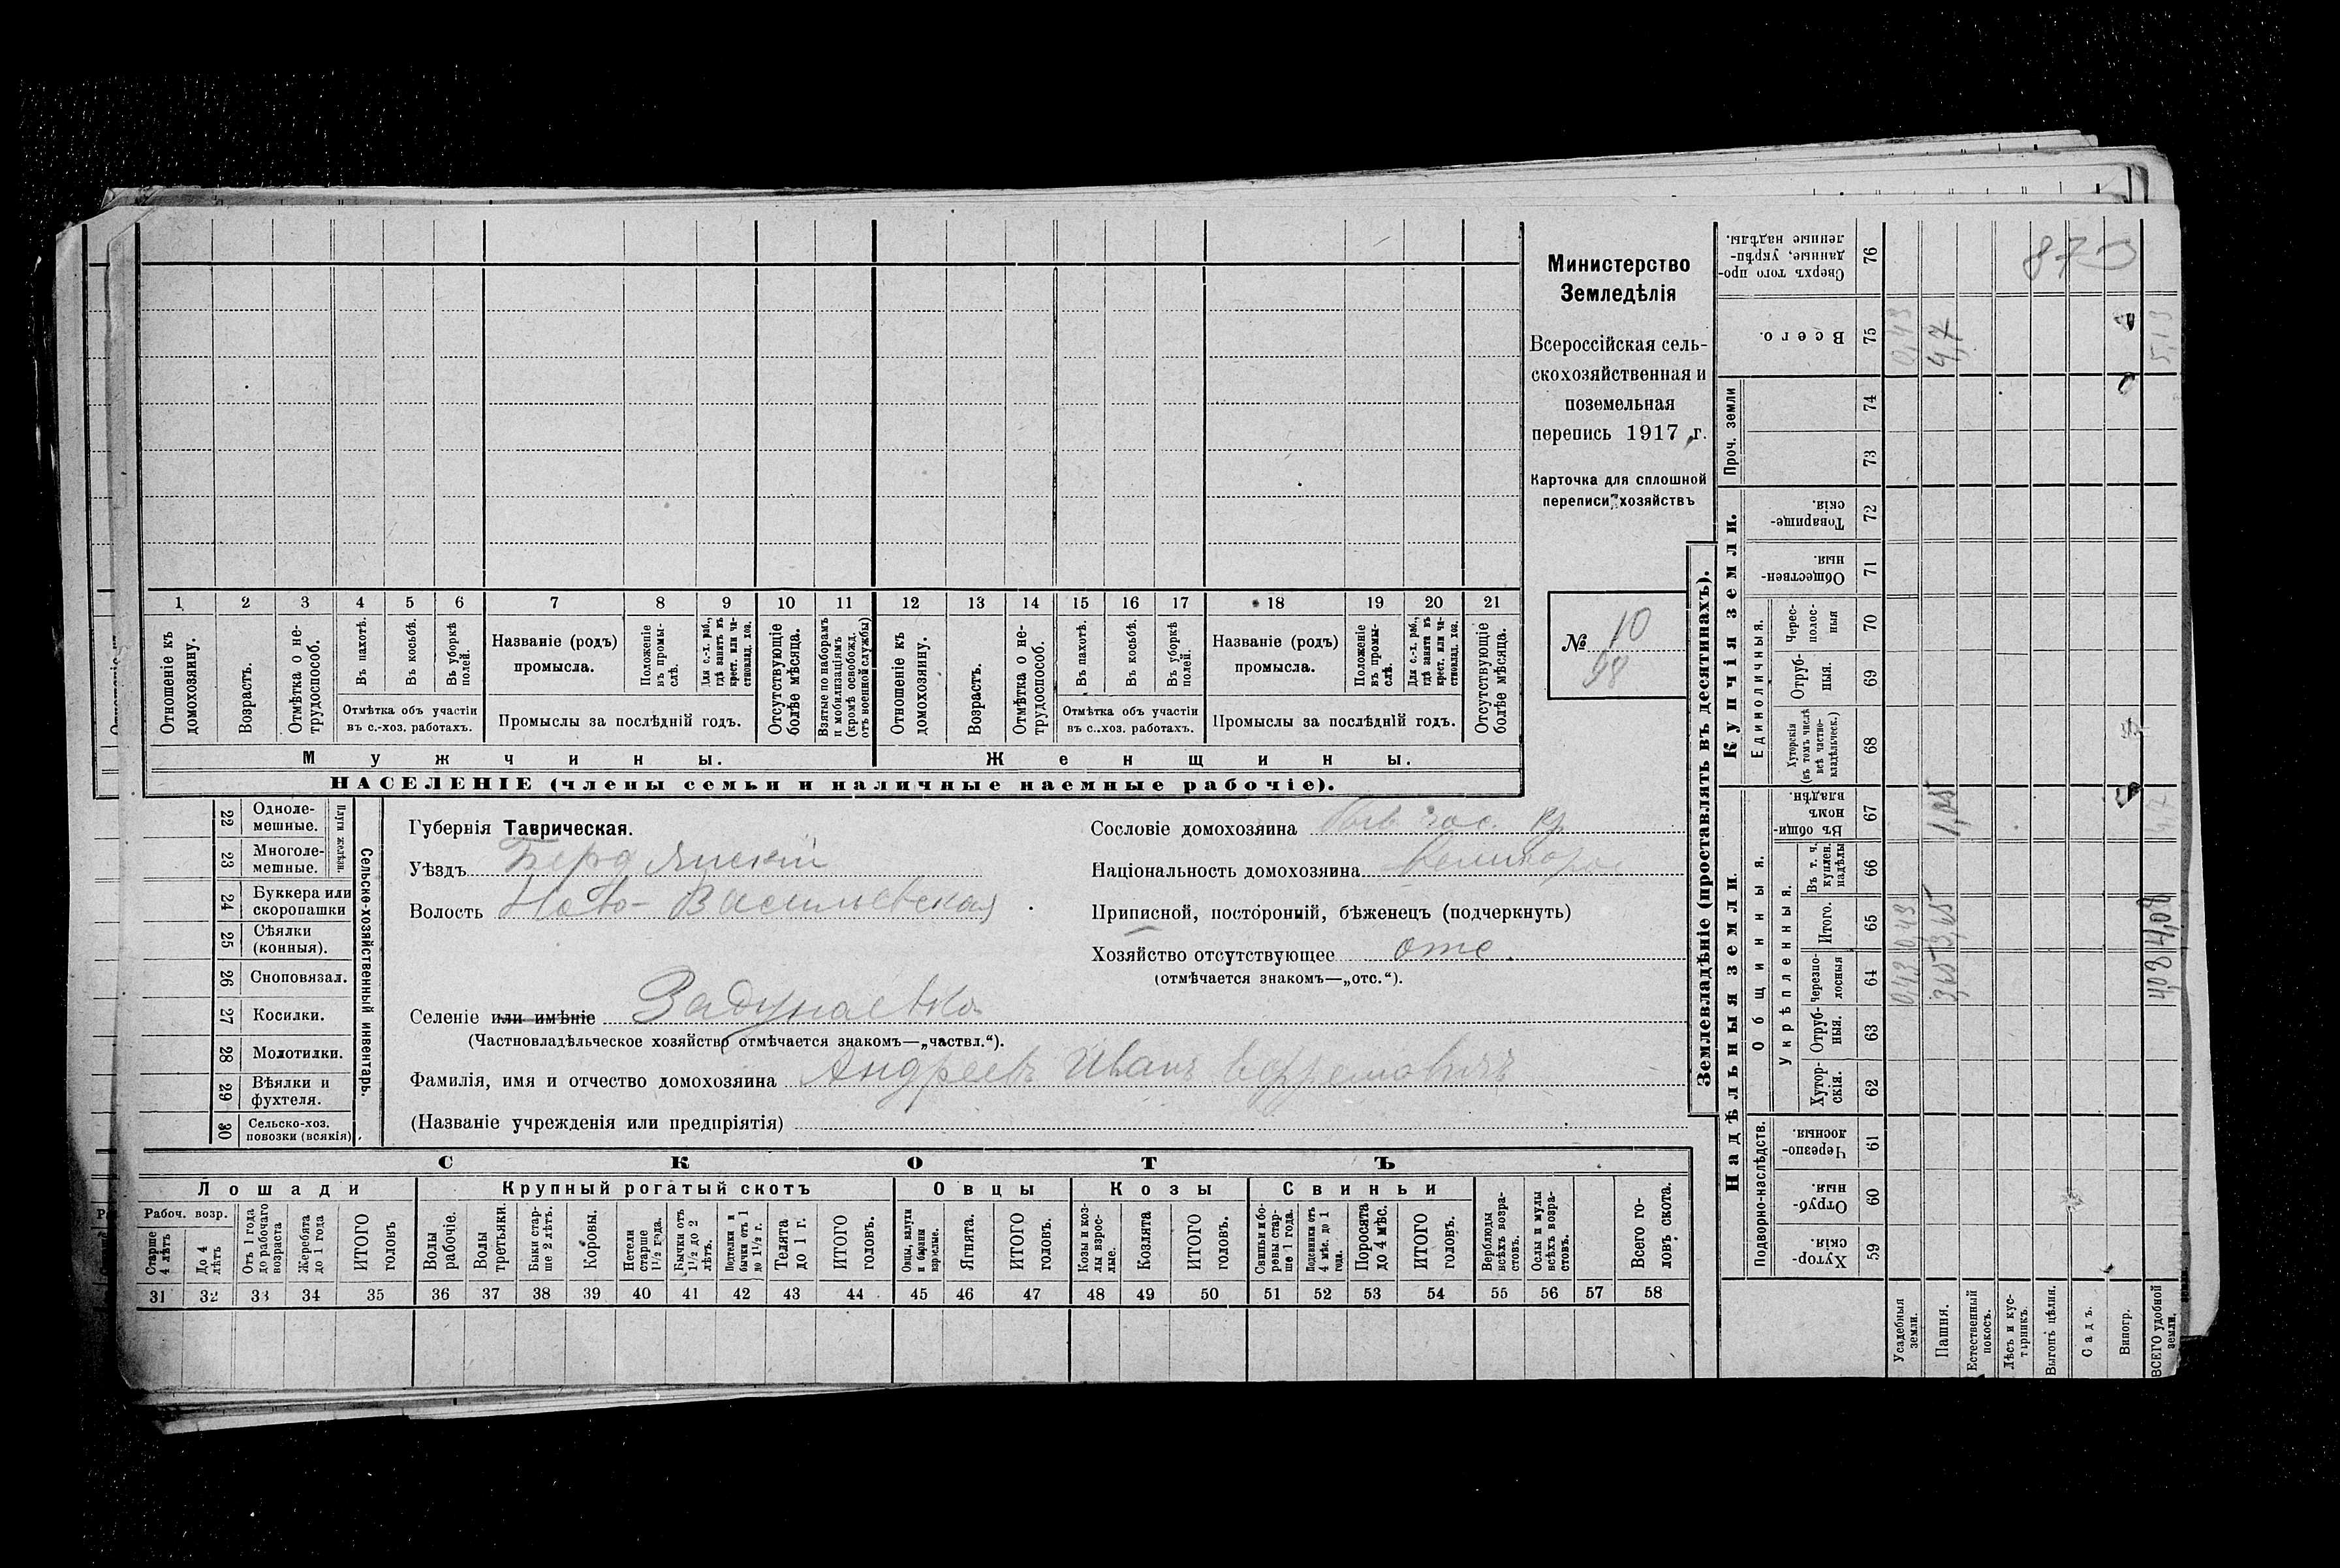 Министерство
Земледѣлія
Всероссійская сель-
скохозяйственная и
поземельная
перепись 1917 г.
Карточка для сплошной
переписи хозяйствъ
№ 10
98
1 2 3 4 5 6 7 8 9 10 11 12 13 14 15 16 17 18 19 20 21
Отношеніе къ домохозяину.
Возрастъ.
Отмѣтка о не-трудоспособ.
Въ пахотѣ.
Въ косьбѣ.
Въ уборкѣ полей.
Отмѣтка объ участіи
въ с.-хоз. работахъ.
Названіе (родъ)
промысла.
Положеніе въ промы-слѣ.
Для с.-х. раб., гдѣ занятъ въ крест. или ча-стновлад. хоз.
Промыслы за послѣдній годъ.
Отсутствующіе болѣе мѣсяца.
Взятые по наборамъ и мобилизаціямъ (кромѣ освобожд. отъ военной службы)
Отношеніе къ домохозяину.
Возрастъ.
Отмѣтка о не-трудоспособ.
Въ пахотѣ.
Въ косьбѣ.
Въ уборкѣ полей.
Отмѣтка объ участіи
въ с.-хоз. работахъ.
Названіе (родъ)
промысла.
Положеніе въ промы-слѣ.
Для с.-х. раб., гдѣ занятъ въ крест. или ча-стновлад. хоз.
Промыслы за послѣдній годъ.
Отсутствующіе болѣе мѣсяца.
Мужчины. Женщины.
НАСЕЛЕНІЕ (члены семьи и наличные наемные рабочіе).
Сельско-хозяйственный инвентарь.
Плуги желѣзн.
22 Одноле-мешные.
23 Многоле-мешные.
24 Буккера или скоропашки
25 Сѣялки (конныя).
26 Сноповязал.
27 Косилки.
28 Молотилки.
29 Вѣялки и фухтеля.
30 Сельско-хоз. повозки (всякія).
Губернія Таврическая.
Уѣздъ Бердянскій
Волость Ново-Васильевская
Селеніе или имѣніе Задунаевка
(Частновладѣльческое хозяйство отмѣчается знакомъ—„частвл.“).
Фамилія, имя и отчество домохозяина Андреевъ Иванъ Ефремовичъ
(Названіе учрежденія или предпріятія)
Сословіе домохозяина быв гос. кр
Національность домохозяина великорос
Приписной, посторонній, бѣженецъ (подчеркнуть)
Хозяйство отсутствующее отс.
(отмѣчается знакомъ—„отс.“).
СКОТЪ
Лошади Крупный рогатый скотъ Овцы Козы Свиньи
Рабоч. возр.
Старше 4 лѣтъ
До 4 лѣтъ
Отъ 1 года до рабочаго возраста
Жеребята до 1 года
ИТОГО головъ
Волы рабочіе.
Волы третьяки.
Быки стар-ше 2 лѣтъ.
Коровы.
Нетели старше 1½ года.
Бычки отъ 1½ до 2 лѣтъ.
Подтелки и бычки отъ 1 до 1½ г.
Телята до 1 г.
ИТОГО головъ.
Овцы, валухи и бараны взрослые.
Ягнята.
ИТОГО головъ.
Козы и коз-лы взрос-лые.
Козлята
ИТОГО головъ.
Свиньи и бо-ровы стар-ше 1 года.
Подсвинки отъ 4 мѣс. до 1 года.
Поросята до 4 мѣс.
ИТОГО головъ.
Верблюды всѣхъ возра-стовъ.
Ослы и мулы всѣхъ возра-стовъ.
Всего го-ловъ скота.
31 32 33 34 35 36 37 38 39 40 41 42 43 44 45 46 47 48 49 50 51 52 53 54 55 56 57 58
Землевладѣніе (проставлять въ десятинахъ).
Надѣльныя земли.
Купчія земли.
Проч. земли
Подворно-наслѣдств.
Общинныя.
Укрѣпленныя.
Единоличныя.
59 Хутор-скія.
60 Отруб-ныя.
61 Черезпо-лосныя.
62 Хутор-скія.
63 Отруб-ныя.
64 Черезпо-лосныя
65 Итого.
66 Въ т. ч. куплен. надѣлы
67 Въ общин-номъ владѣн.
68 Хуторскія (въ томъ числѣ всѣ частно-владѣльческ.)
69 Отруб-ныя.
70 Черес-полос-ныя
71 Обществен-ныя.
72 Товарище-скія.
73
74
75 Всего.
76 Сверхъ того про-данные, укрѣп-ленные надѣлы.
Усадебныя земли. 0,43 0,43 0,43
Пашня. 3,65 3,65 1,05 4,7
Естественный покосъ.
Лѣсъ и кус-тарникъ.
Выгонъ цѣлин.
Садъ.
Виногр.
ВСЕГО удобной земли. 4,08 4,08 5,13